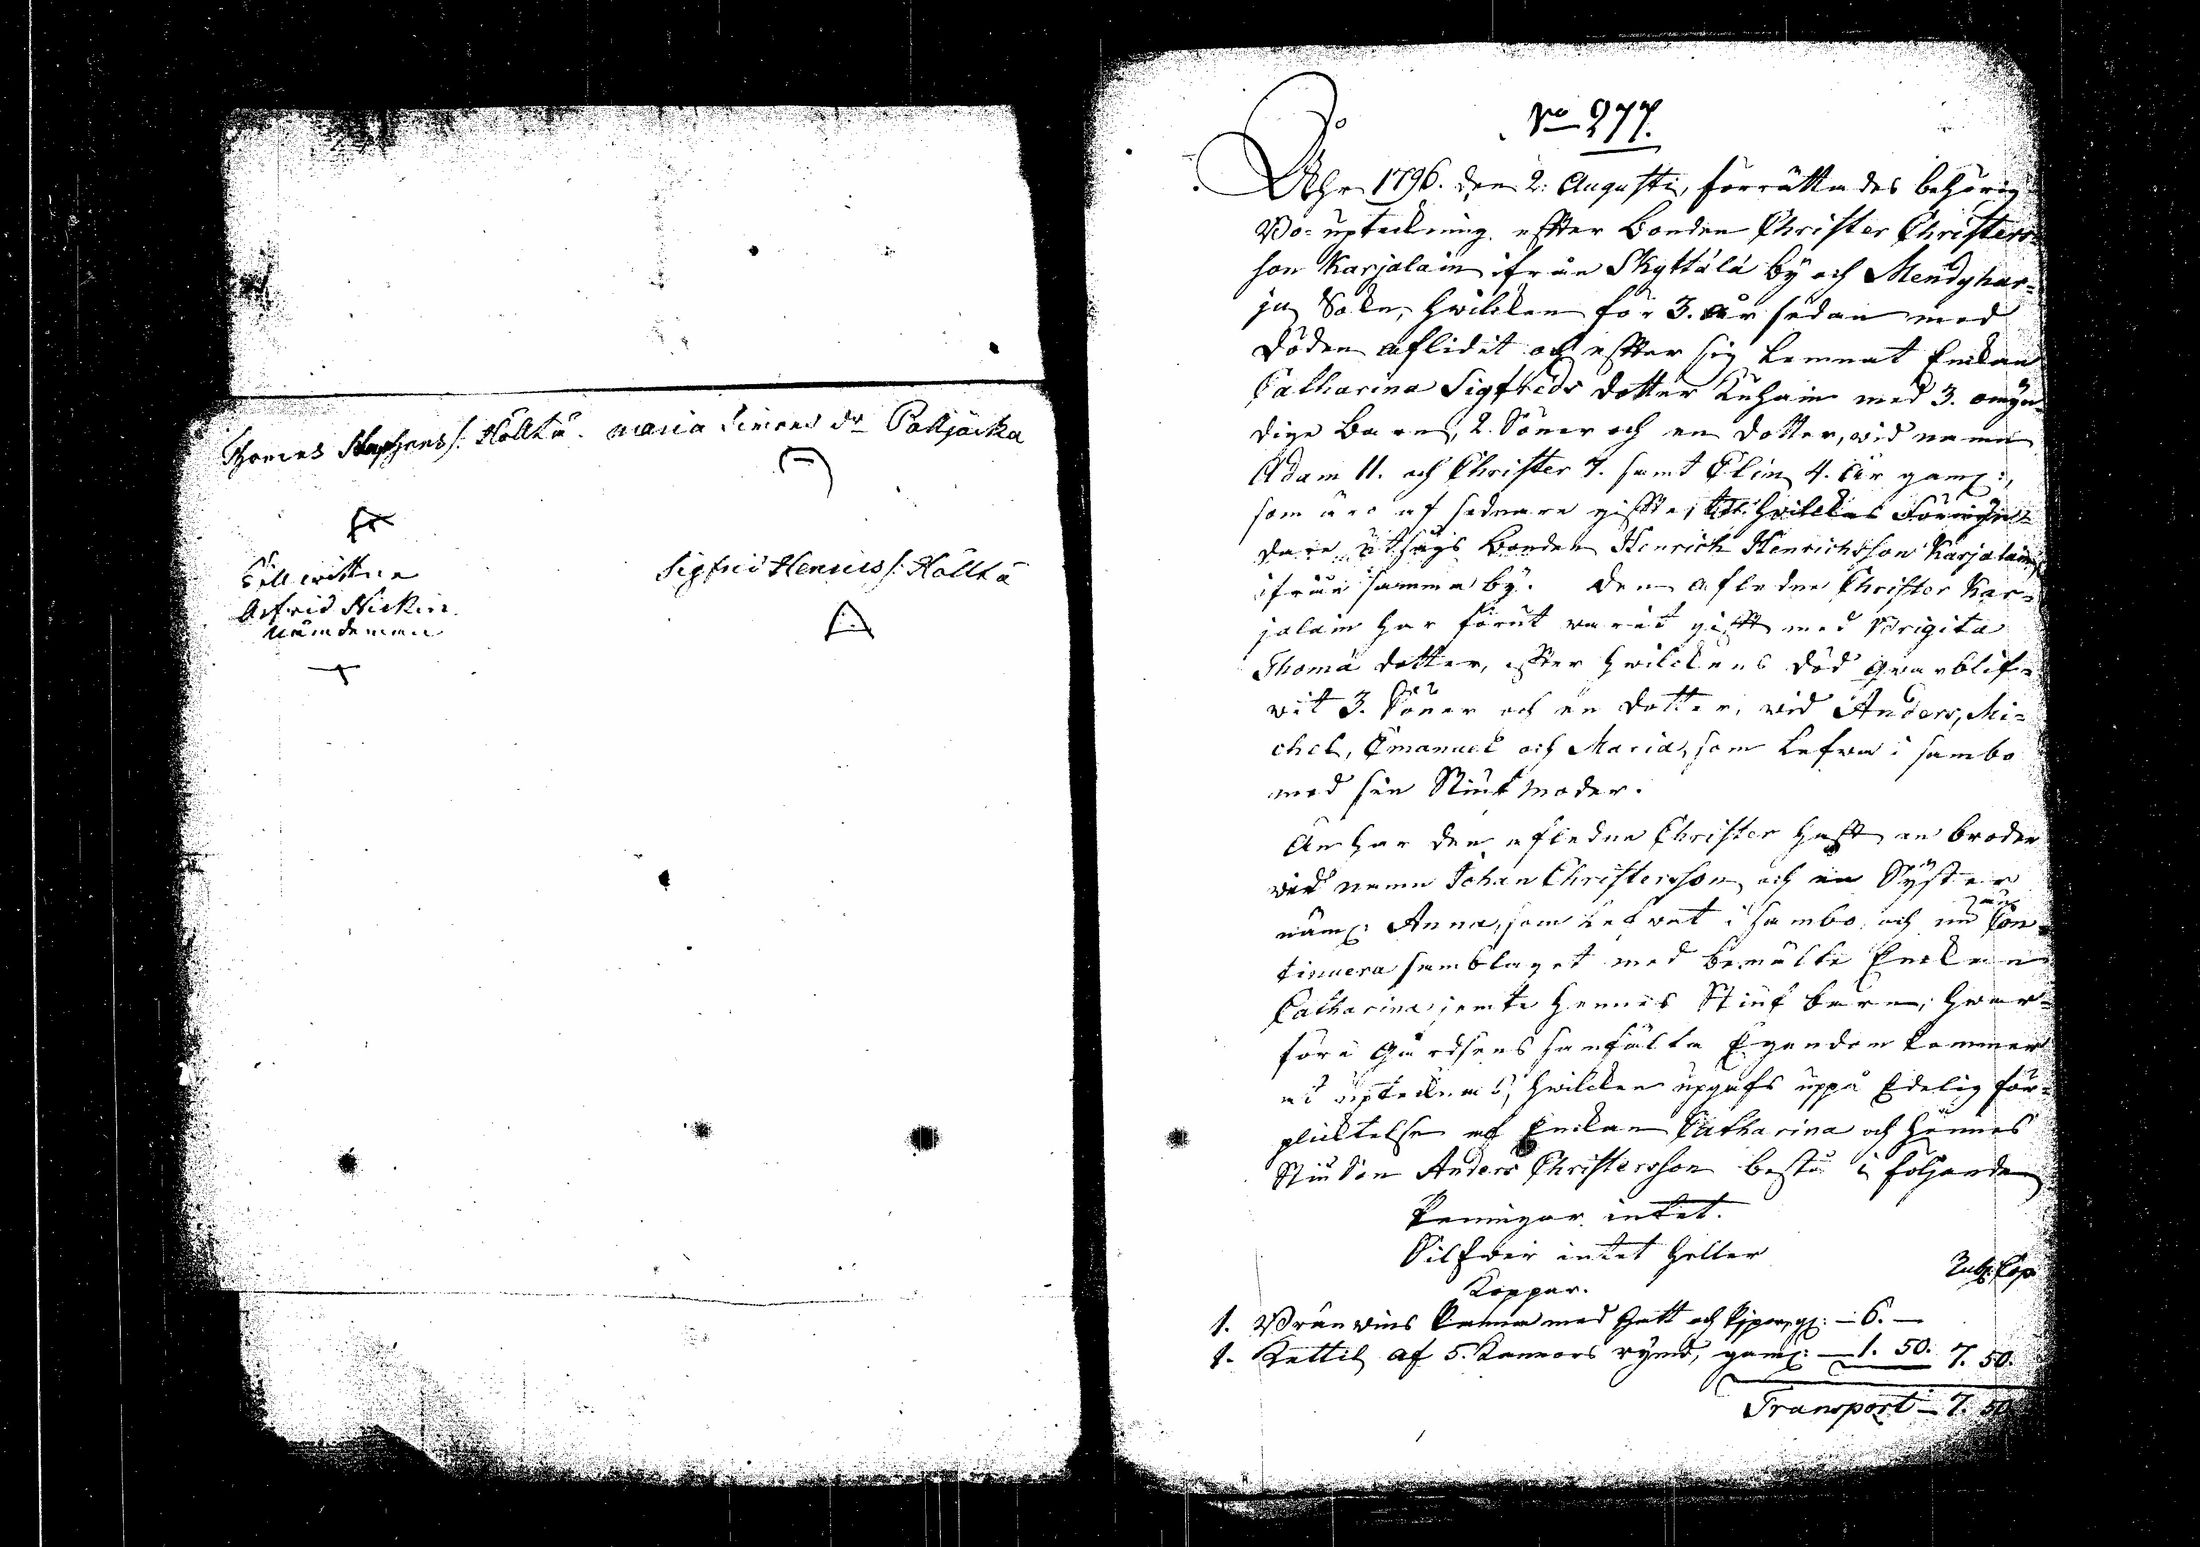 Thomas Staphans s: Hölltä. Maria Simons dr Pakjacka
Till wittne
Sigfrid Henrics s: Hölltä
Nämdeman
No 277.
Åhr 1796. den 2: Augusti, förrättades behörig
Bo-upteckning efter Bonden Christer Christers-
son Karjalain ifrån Skyttälä by och Mendyhar-
ju Sokn, hwilcken för 3. år sedan med
döden aflidit och efter sig lemnat Enckan
Catharina Sigfreds dotter Kuhain med 3. omyn-
dige Barn, 2. Söner och en dotter, wid namn
Adam 11. och Christer 7. samt Elin 4. år gaml:,
som äro af sednare gifte, till hwilckas Förmyn-
dare utsågs Bonden Henrich Henrichsson Karjalain
ifrån samma by. Den afledne Christer Kar-
jalain har förut warit gift med Brigita
Thomä dotter, efter hwilckens död qwarblif-
wit 3. Söner och en dotter, wid Anders, Mi-
chel, Emanuel och Maria, som lefwa i sambo
med sin Stiufmoder.
Än har den aflednе Christer haft en broder
wid namn Johan Christersson och en Syster
näml: Anna, som lefwat i sambo, och än Con-
tinuera sambolaget med bemälte Enckan
Catharina jemte hennes Stiufbarn, hwar-
före Gårdsens samfälta Egendom kommer
at uptecknas, hwilcken upgafs uppå Edelig för-
plicktelse af Enckan Catharina och hennes
Stiufson Anders Christersson bestå i följande
Penningar intet.
Silfwer intet heller
Rubl: Cop
Koppar.
1. Bränwins Panna med hatt och pipor, gl: – 6. –
1. Kettil af 5. Kannors rymd, gaml: – 1. 50. 7. 50.
Transport – 7. 50